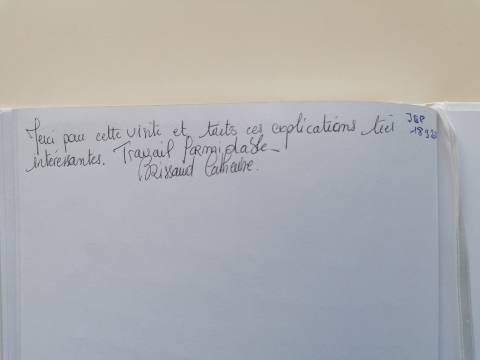 Merci pour cette visite et toutes ces explications très
intéressantes. Travail formidable
Brissaud Catherine.
JEP